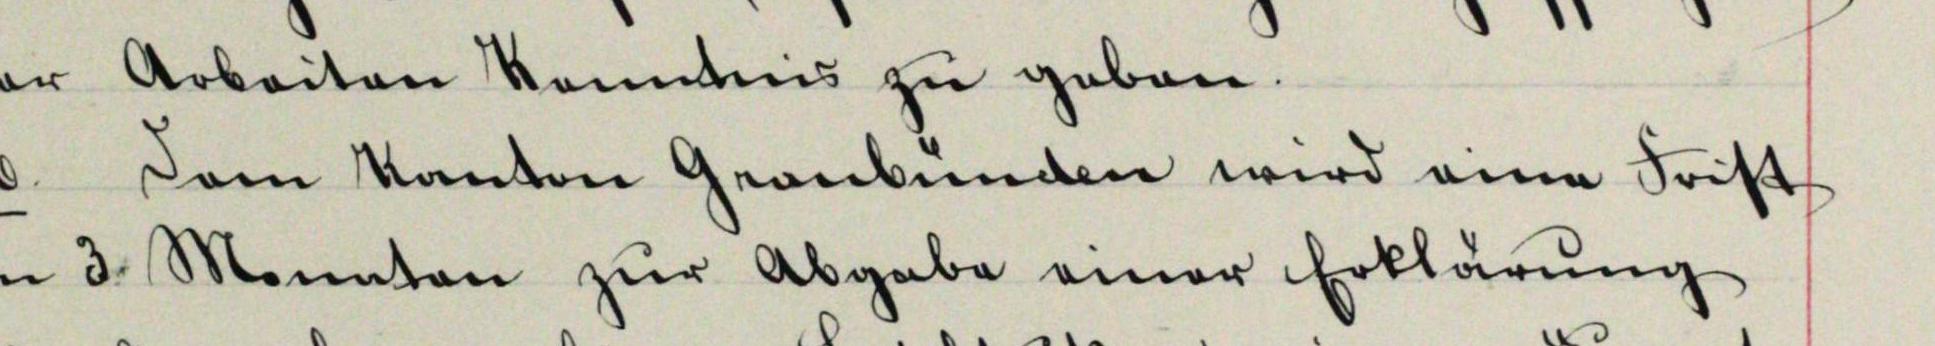 er Arbeiten Kenntnis zu geben.
Dem Kanton Graubünden wird eine Frist
n 3 Monaten zur Abgabe einer Erklärung